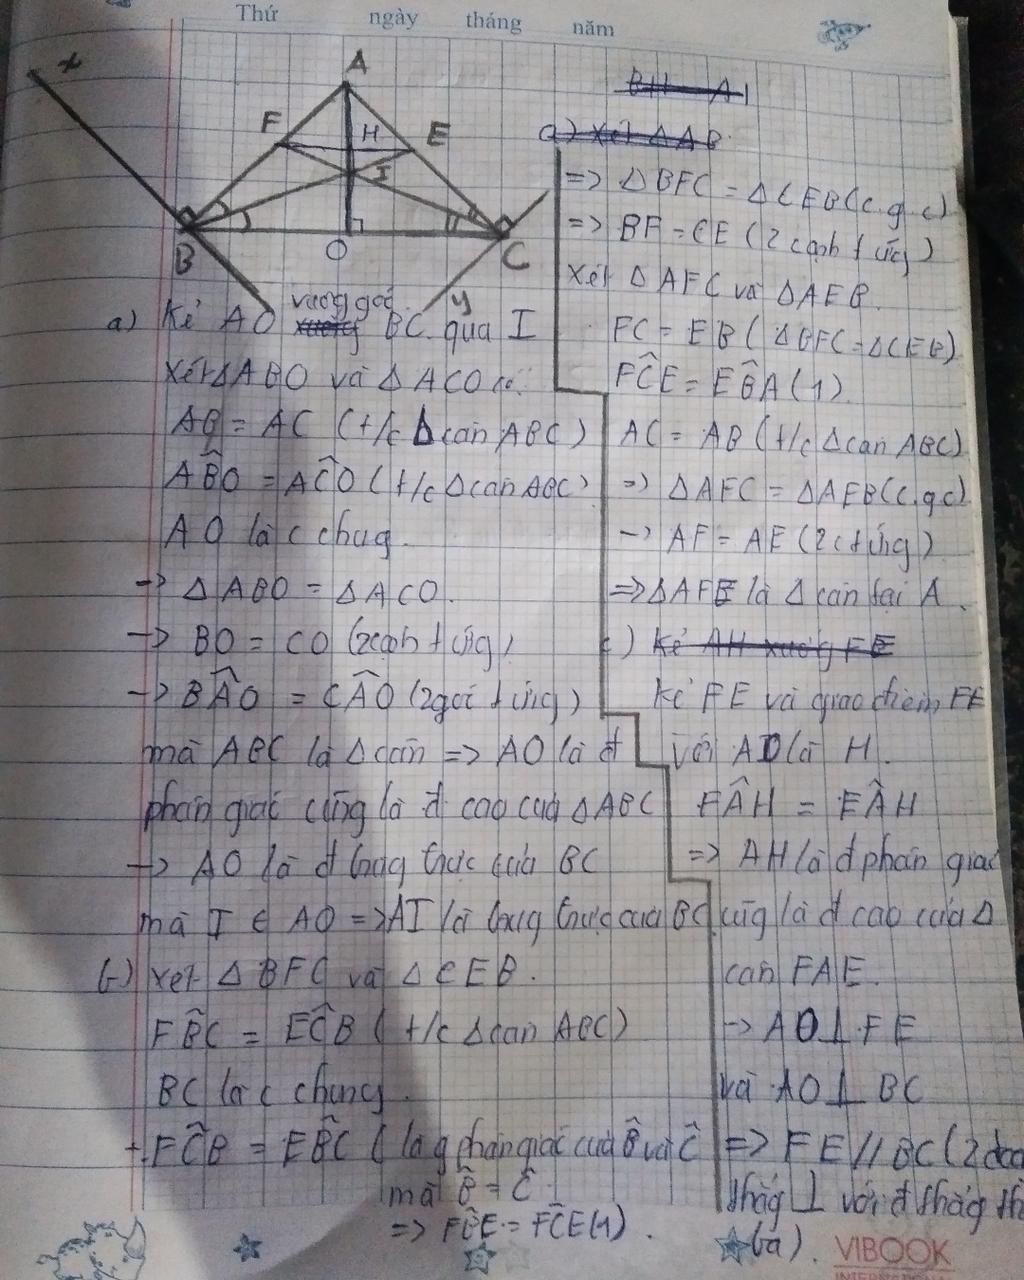 Thứ ngày tháng năm
x
A
F
H
E
I
B
O
C
y
a) Kẻ AO vuông góc BC qua I
Xét ΔABO và ΔACO có:
AB = AC (t/c Δ cân ABC)
AB̂O = AĈO (t/c Δ cân ABC)
AO là c chug.
-> ΔABO = ΔACO.
-> BO = CO (2 cạnh t ứng)
-> BÂO = CÂO (2 goć t ứng)
mà ABC là Δ cân => AO là đ
phân giác cũng là đ cao của ΔABC
-> AO là đ trug trực của BC
mà I ∈ AO => AI là trug trực của BC
b) xét Δ BFC và Δ CEB.
FB̂C = EĈB (t/c Δ cân ABC)
BC là c chung.
FĈB = EB̂C (là g phân giác của B̂ và Ĉ
mà B̂ = Ĉ
BH AI
a) Xét Δ AB
=> ΔBFC = ΔCEB (c.g.c)
=> BF = CE (2 cạnh t ứng)
Xét ΔAFC và ΔAEB.
FC = EB (ΔBFC = ΔCEB)
FĈE = EB̂A (1).
AC = AB (t/c Δ cân ABC)
=> ΔAFC = ΔAEB (c.gc)
-> AF = AE (2 c t ứng)
=> ΔAFE là Δ cân tại A.
c) Kẻ AH xuống FE
kẻ FE và giao điểm FE
với AO là H.
FÂH = EÂH
=> AH là đ phân giác
cũg là đ cao của Δ
cân FAE.
-> AO ⊥ FE
và AO ⊥ BC
=> FE // BC (2 đoạ
thẳg ⊥ với đ thẳg th
ba).
VIBOOK